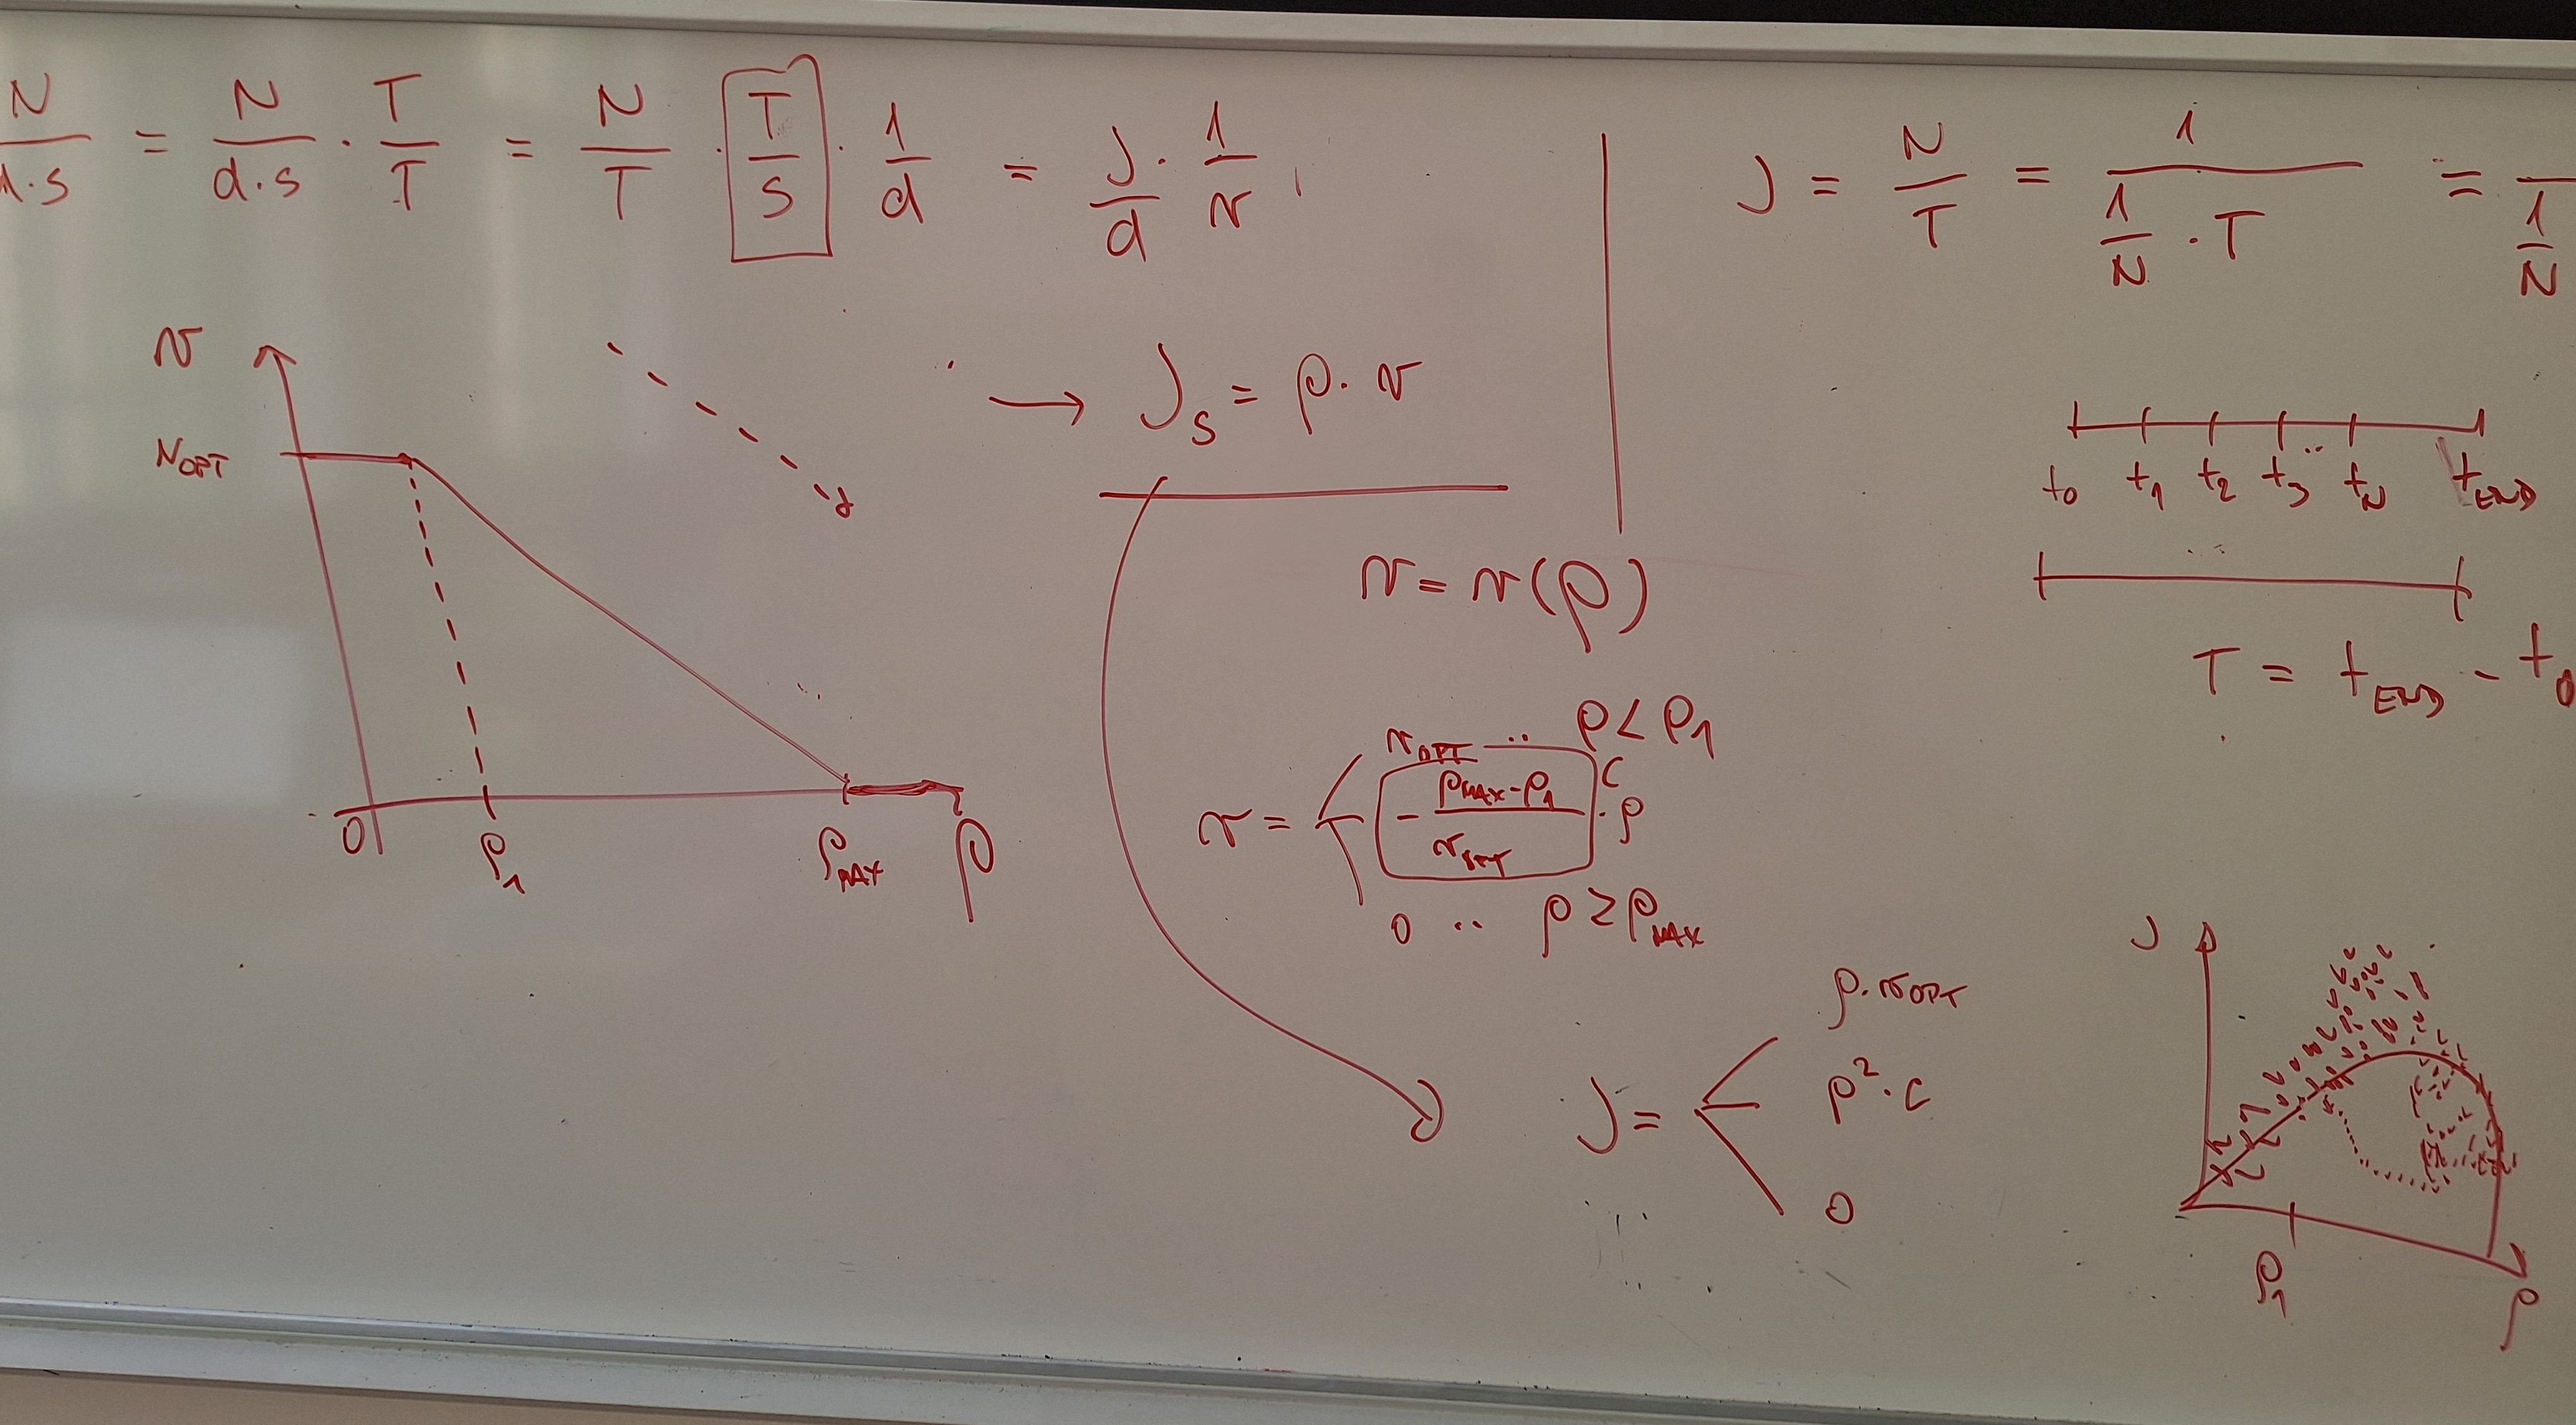 N/d·s = N/d·s · T/T = N/T · T/s · 1/d = J/d · 1/v
J = N/T = 1/(1/N · T) = 1/N
v
v_OPT
0 ρ_1 ρ_MAX ρ
→ J_s = ρ · v
v = v(ρ)
v = v_OPT .. ρ < ρ_1
- (ρ_MAX - ρ_1)/v_OPT C · ρ
0 .. ρ ≥ ρ_MAX
J = ρ · v_OPT
ρ² · c
0
t_0 t_1 t_2 t_3 .. t_N t_END
T = t_END - t_0
J
ρ_1 ρ